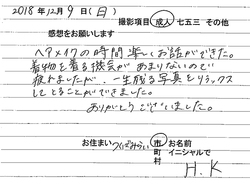 2018年12月9日(日)
撮影項目 成人 七五三 その他
感想をお願いします
ヘアメイクの時間 楽しくお話ができた。
着物を着る機会があまりないので
疲れましたが、一生残る写真をリラックス
してとることができました。
ありがとうございました。
お住まい つくばみらい 市 町 村 お名前 イニシャルで
H.K